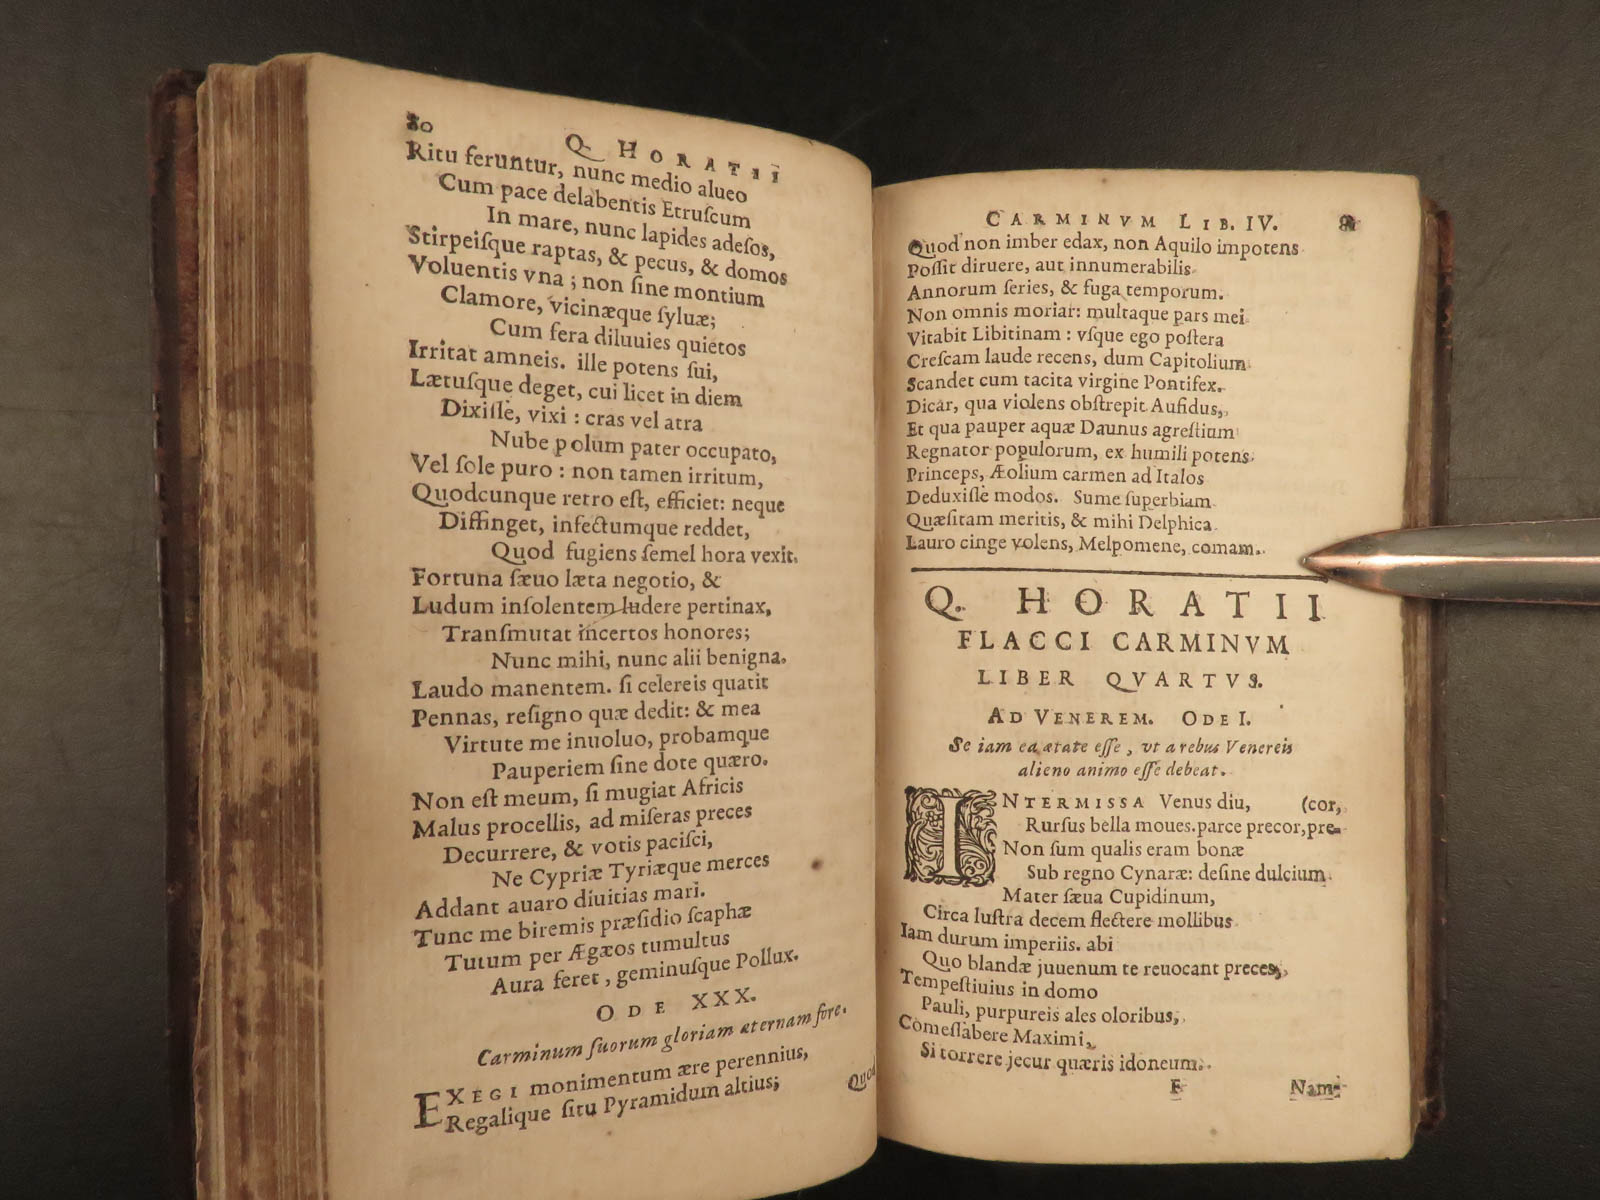 80
Q. HORATII
Ritu feruntur, nunc medio alueo
Cum pace delabentis Etruſcum
In mare, nunc lapides adeſos,
Stirpeiſque raptas, & pecus, & domos
Voluentis vna ; non ſine montium
Clamore, vicinæque ſyluæ;
Cum fera diluuies quietos
Irritat amneis. ille potens ſui,
Lætuſque deget, cui licet in diem
Dixiſſe, vixi : cras vel atra
Nube polum pater occupato,
Vel ſole puro : non tamen irritum,
Quodcunque retro eſt, efficiet: neque
Diffinget, infectumque reddet,
Quod fugiens ſemel hora vexit.
Fortuna ſæuo læta negotio, &
Ludum inſolentem ludere pertinax,
Tranſmutat incertos honores;
Nunc mihi, nunc alii benigna.
Laudo manentem. ſi celereis quatit
Pennas, reſigno quæ dedit: & mea
Virtute me inuoluo, probamque
Pauperiem ſine dote quæro.
Non eſt meum, ſi mugiat Africis
Malus procellis, ad miſeras preces
Decurrere, & votis paciſci,
Ne Cypriæ Tyriæque merces
Addant auaro diuitias mari.
Tunc me biremis præſidio ſcaphæ
Tutum per Ægæos tumultus
Aura feret, geminuſque Pollux.
ODE XXX.
Carminum ſuorum gloriam æternam fore.
EXEGI monimentum ære perennius,
Regalique ſitu Pyramidum altius;
Quod
CARMINVM LIB. IV.
Quod non imber edax, non Aquilo impotens
Poſſit diruere, aut innumerabilis
Annorum ſeries, & fuga temporum.
Non omnis moriar: multaque pars mei
Vitabit Libitinam : vſque ego poſtera
Creſcam laude recens, dum Capitolium
Scandet cum tacita virgine Pontifex.
Dicar, qua violens obſtrepit Aufidus,
Et qua pauper aquæ Daunus agreſtium
Regnator populorum, ex humili potens
Princeps, Æolium carmen ad Italos
Deduxiſſe modos. Sume ſuperbiam
Quæſitam meritis, & mihi Delphica
Lauro cinge volens, Melpomene, comam.
Q. HORATII
FLACCI CARMINVM
LIBER QVARTVS.
AD VENEREM. ODE I.
Se iam ea ætate eſſe, vt a rebus Venereis
alieno animo eſſe debeat.
INTERMISSA Venus diu, (cor,
Rurſus bella moues. parce precor, pre-
Non ſum qualis eram bonæ
Sub regno Cynaræ: deſine dulcium
Mater ſæua Cupidinum,
Circa luſtra decem flectere mollibus
Iam durum imperiis. abi
Quo blandæ juuenum te reuocant preces,
Tempeſtiuius in domo
Pauli, purpureis ales oloribus,
Comeſſabere Maximi,
Si torrere jecur quæris idoneum.
F
Nam